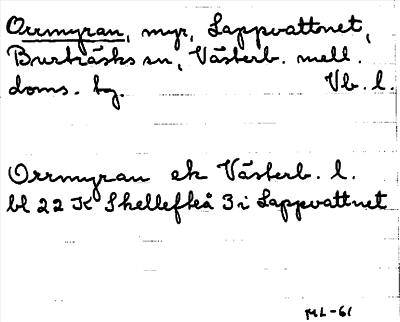 Orrmyran, myr, Lappvattnet,
Burträsks sn, Västerb. mell.
doms. hg. Vb. l.
Orrmyran ek Västerb. l.
bl 22 K Skellefteå 3 i Lappvattnet
ML-61